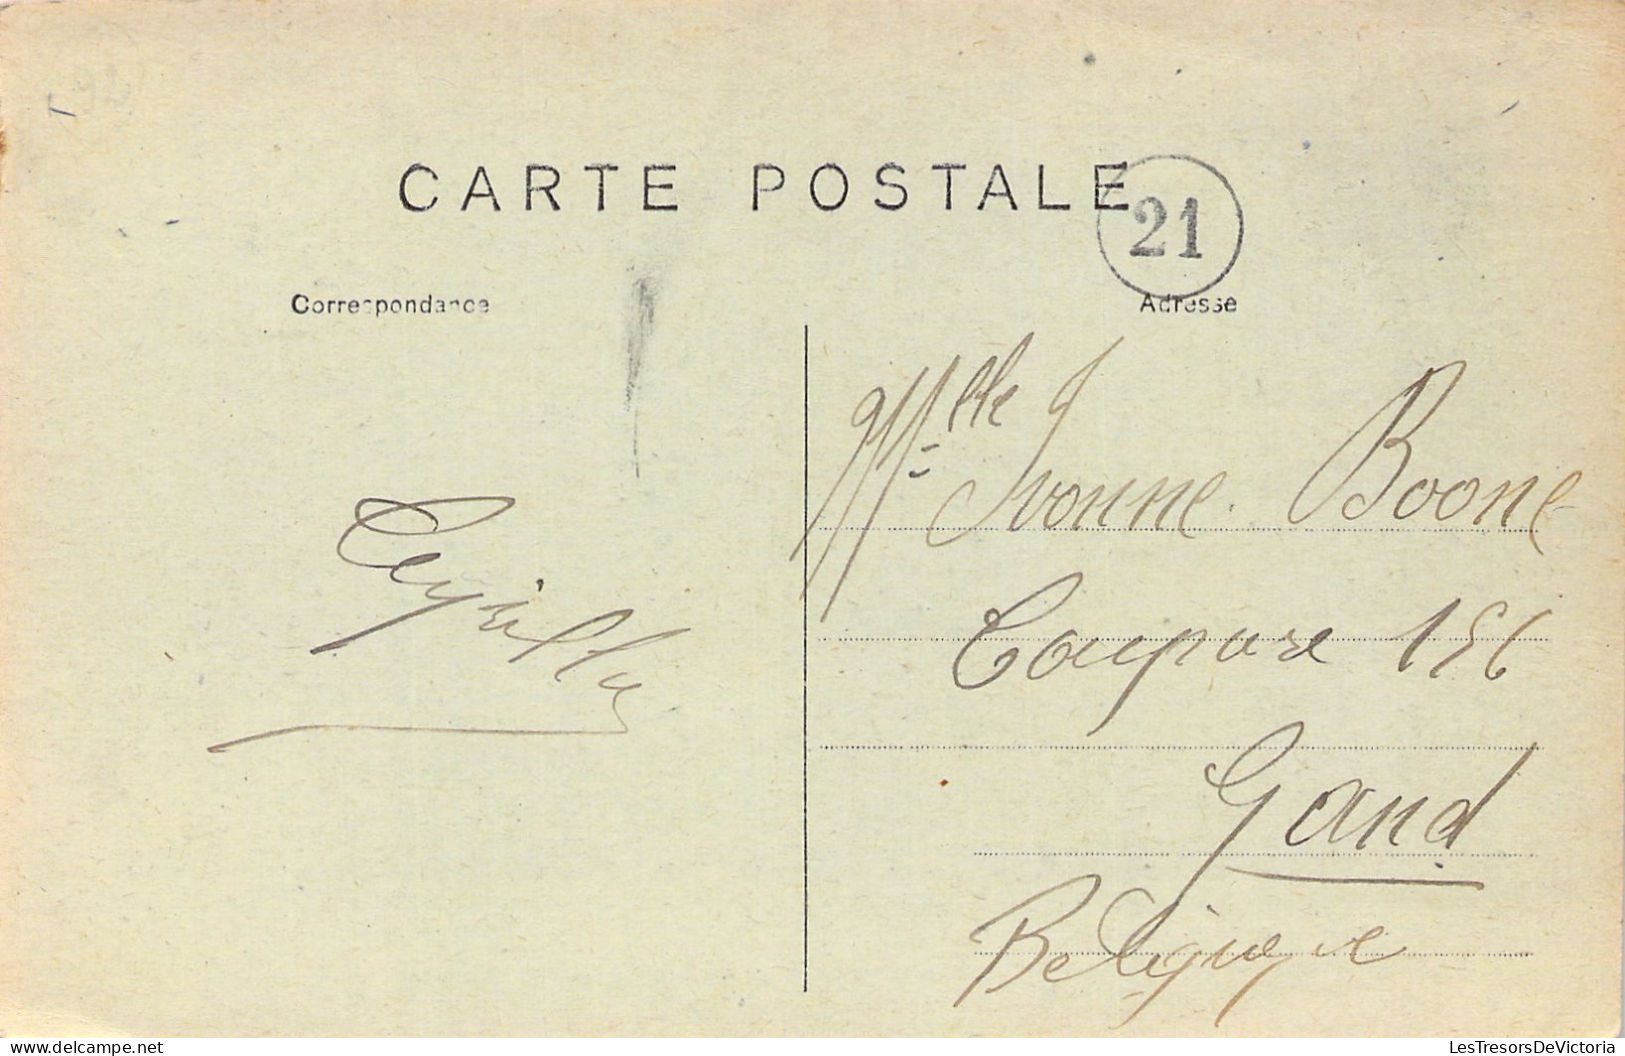 CARTE POSTALE
21
Correspondance
Adresse
Mlle Yvonne Boone
Coupure 156
Gand
Belgique
LesTresorsDeVictoria.com